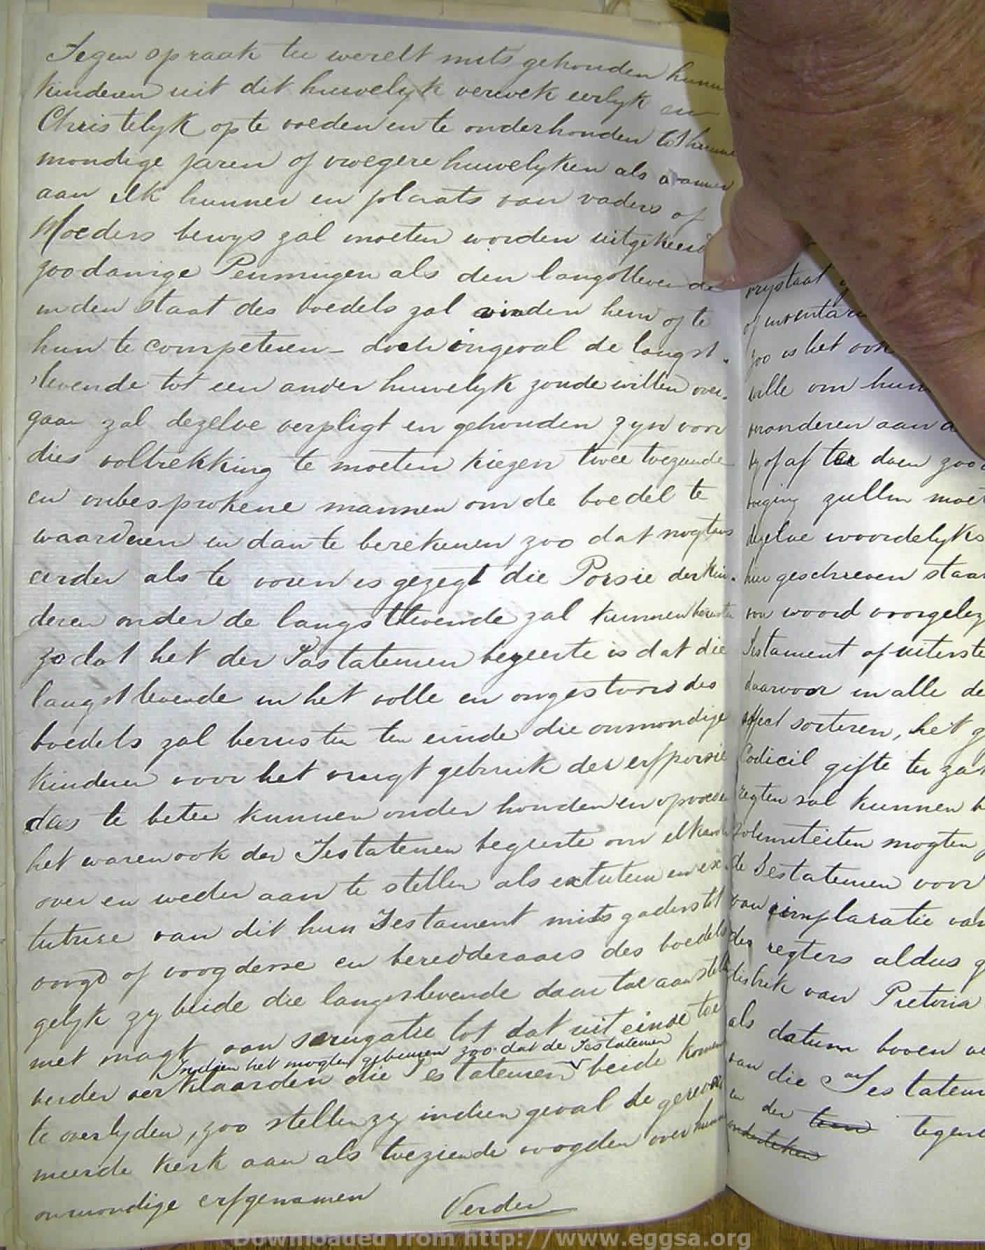 Tegen spraak te werelt mits gehouden hunne
kinderen uit dit huwelyk verwek eerlyk en
Christelyk op te voeden en te onderhouden tot hunne
mondige jaren of vroegere huwelyken als wanneer
aan elk hunner in plaats van vaders of
Moeders bewys zal moeten worden uitgekeerd
zoodanige Penningen als den langstlevende
in den Staat des boedels zal vinden hem of te
hun te competeren – doch ingeval de langst-
levende tot een ander huwelyk zoude willen over-
gaan zal dezelve verpligt en gehouden zyn voor
dies voltrekking te moeten kiezen twee
en onbesprokene mannen om de boedel te
waarderen en dan te berekenen zoo dat nogtans
eerder als te voren is gezegt die Porsie der kin-
deren onder de langstlevende zal kunnen
zodat het der Tastateuren begeerte is dat die
langstlevende in het volle en ongestoord des
boedels zal berusten ten einde die onmondige
kinderen voor het vrugt gebruik der erfporsie
das te beter kunnen onder houden en opvoeden
het waren ook der Testateuren begeerte om elkander
over en weder aan te stellen als exkuteur en exe-
kutrise van dit hun Testament mits gaders tot
voogd of voogdesse en beredderaars des boedels
gelyk zy beide die langstlevende daar toe aanstelle
met magt van surugatie tot dat uit einde toe
Indien het mogten gebeuren zoo dat de Testateuren
verder verklaarden die Testateuren beide komen
te overlyden, zoo stellen zy indien geval de gerevor-
meerde Kerk aan als toeziende voogden over hunne
onmondige erfgenamen
Verder
vrystaat
of inventaris
zoo is het ook
wille om hun
veranderen aan
by of af te doen zoo
zullen moe
woordelyks
hier geschreven staan
woord voorgelez
Testament of uiterste
daarvoor in alle de
effect sorteren, het
Codicil gifte ter zak
regten zal kunnen b
Solemniteiten mogten
de Testateuren voor
van implaratie van
des regters aldus g
distrikt van Pretoria
als datum boven
van die Testateur
en der tegen